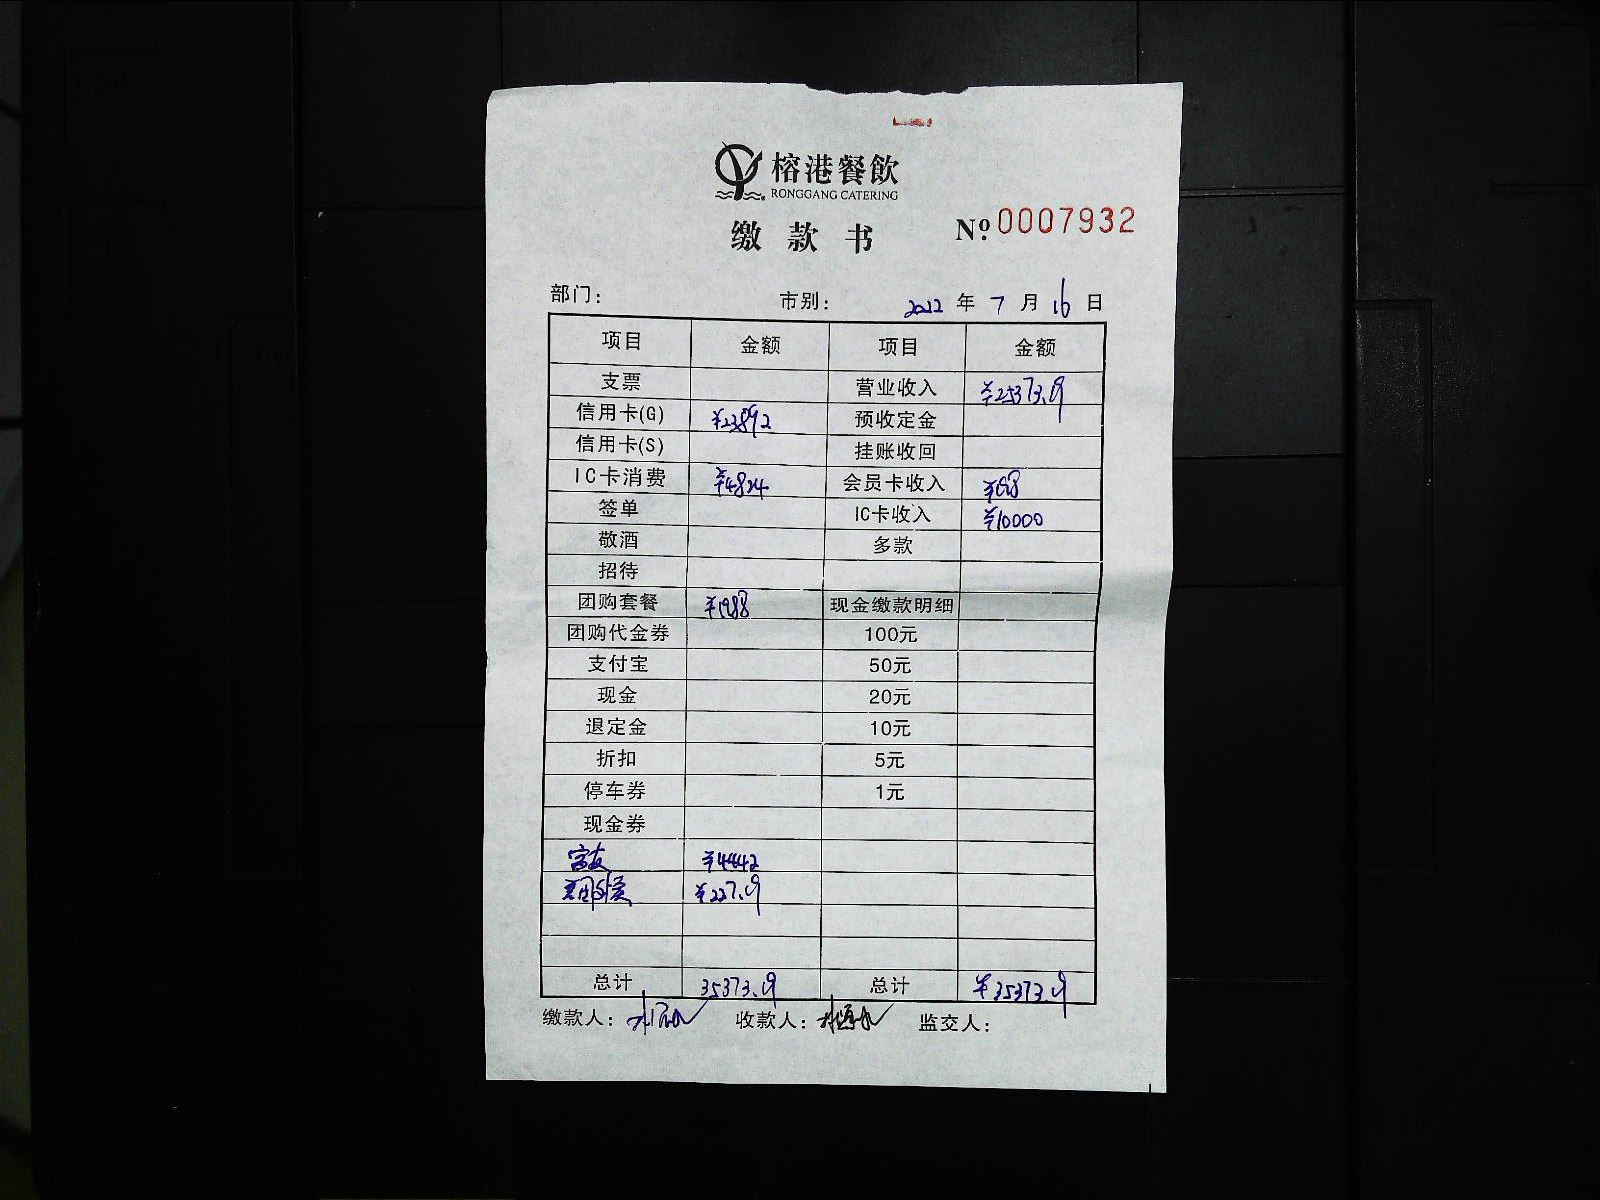 榕港餐飲
RONGGANG CATERING
缴款书 Nº 0007932
部门： 市别： 2022 年 7 月 16 日
项目 金额 项目 金额
支票 营业收入 ¥25373.9
信用卡(G) ¥23892 预收定金
信用卡(S) 挂账收回
IC卡消费 ¥4824 会员卡收入 ¥198
签单 IC卡收入 ¥10000
敬酒 多款
招待
团购套餐 ¥1988 现金缴款明细
团购代金券 100元
支付宝 50元
现金 20元
退定金 10元
折扣 5元
停车券 1元
现金券
¥4442
美团外卖 ¥227.9
总计 35373.9 总计 ¥35373.9
缴款人： 收款人： 监交人：